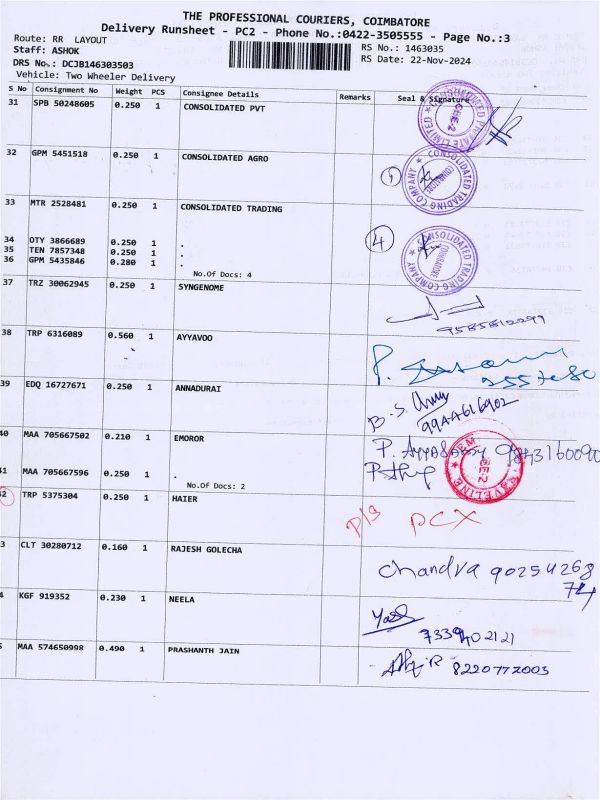 THE PROFESSIONAL COURIERS, COIMBATORE
Delivery Runsheet - PC2 - Phone No.:0422-3505555 - Page No.:3
Route: RR LAYOUT
RS No.: 1463035
Staff: ASHOK
RS Date: 22-Nov-2024
DRS No.: DCJB146303503
Vehicle: Two Wheeler Delivery
S No Consignment No Weight PCS Consignee Details Remarks Seal & Signature
31 SPB 50248605 0.250 1 CONSOLIDATED PVT
CONSOLIDATED PRIVATE LIMITED
CBE-2
32 GPM 5451518 0.250 1 CONSOLIDATED AGRO
1
CONSOLIDATED TRADING COMPANY
COIMBATORE
33 MTR 2528481 0.250 1 CONSOLIDATED TRADING
34 OTY 3866689 0.250 1 .
35 TEN 7857348 0.250 1 .
36 GPM 5435846 0.280 1 .
No.Of Docs: 4
4
CONSOLIDATED TRADING COMPANY
COIMBATORE
37 TRZ 30062945 0.250 1 SYNGENOME
38 TRP 6316089 0.560 1 AYYAVOO
39 EDQ 16727671 0.250 1 ANNADURAI
B.S.
40 MAA 705667502 0.210 1 EMOROR
41 MAA 705667596 0.250 1 .
No.Of Docs: 2
42 TRP 5375304 0.250 1 HAIER
P/S PCX
3 CLT 30280712 0.160 1 RAJESH GOLECHA
Chandra 90254268
74
4 KGF 919352 0.230 1 NEELA
7339402121
5 MAA 574650998 0.490 1 PRASHANTH JAIN
8220772003